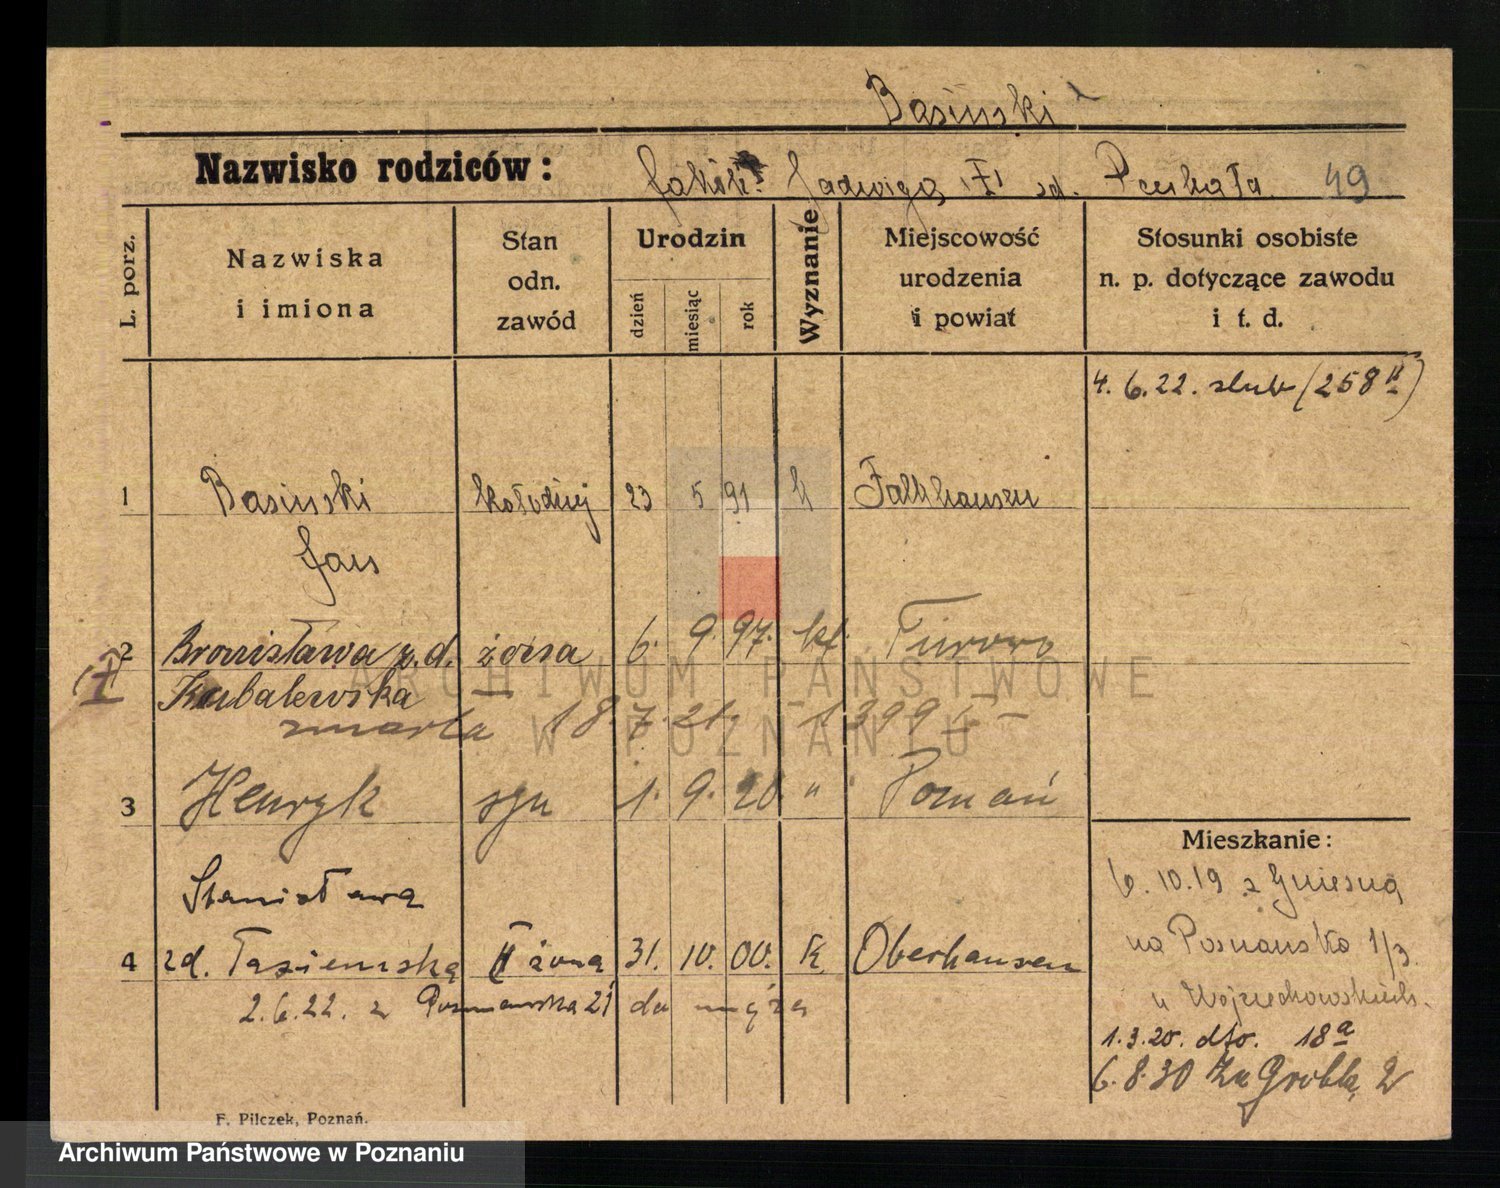 Basinski
Nazwisko rodziców: Jakób Jadwiga zd. Puchała 49
L. porz.
Nazwiska i imiona
Stan odn. zawód
Urodzin
dzień
miesiąc
rok
Wyznanie
Miejscowość urodzenia i powiat
Stosunki osobiste n. p. dotyczące zawodu i t. d.
4. 6. 22. slub (258 II)
1 Basinski kołodziej 23 5 91 k Falkhausen
Jan
2 Bronisława z. d. żona 6. 9. 97. kt. Turowo
Kubalewska
zmarła 18. 7. 21. 1399
3 Henryk syn 1. 9. 20. " Poznań
Stanisława
4 zd. Taziemska II żona 31. 10. 00. k Oberhausen
2. 6. 22. z Poznanska 21 do męża
Mieszkanie:
6. 10. 19 z Gniezna
na Poznansko 1/3.
u Wojciechowskich.
1. 3. 20. dto. 18a
6. 8. 30 Za Groblą 2
F. Pilczek, Poznań.
ARCHIWUM PAŃSTWOWE
W POZNANIU
Archiwum Państwowe w Poznaniu